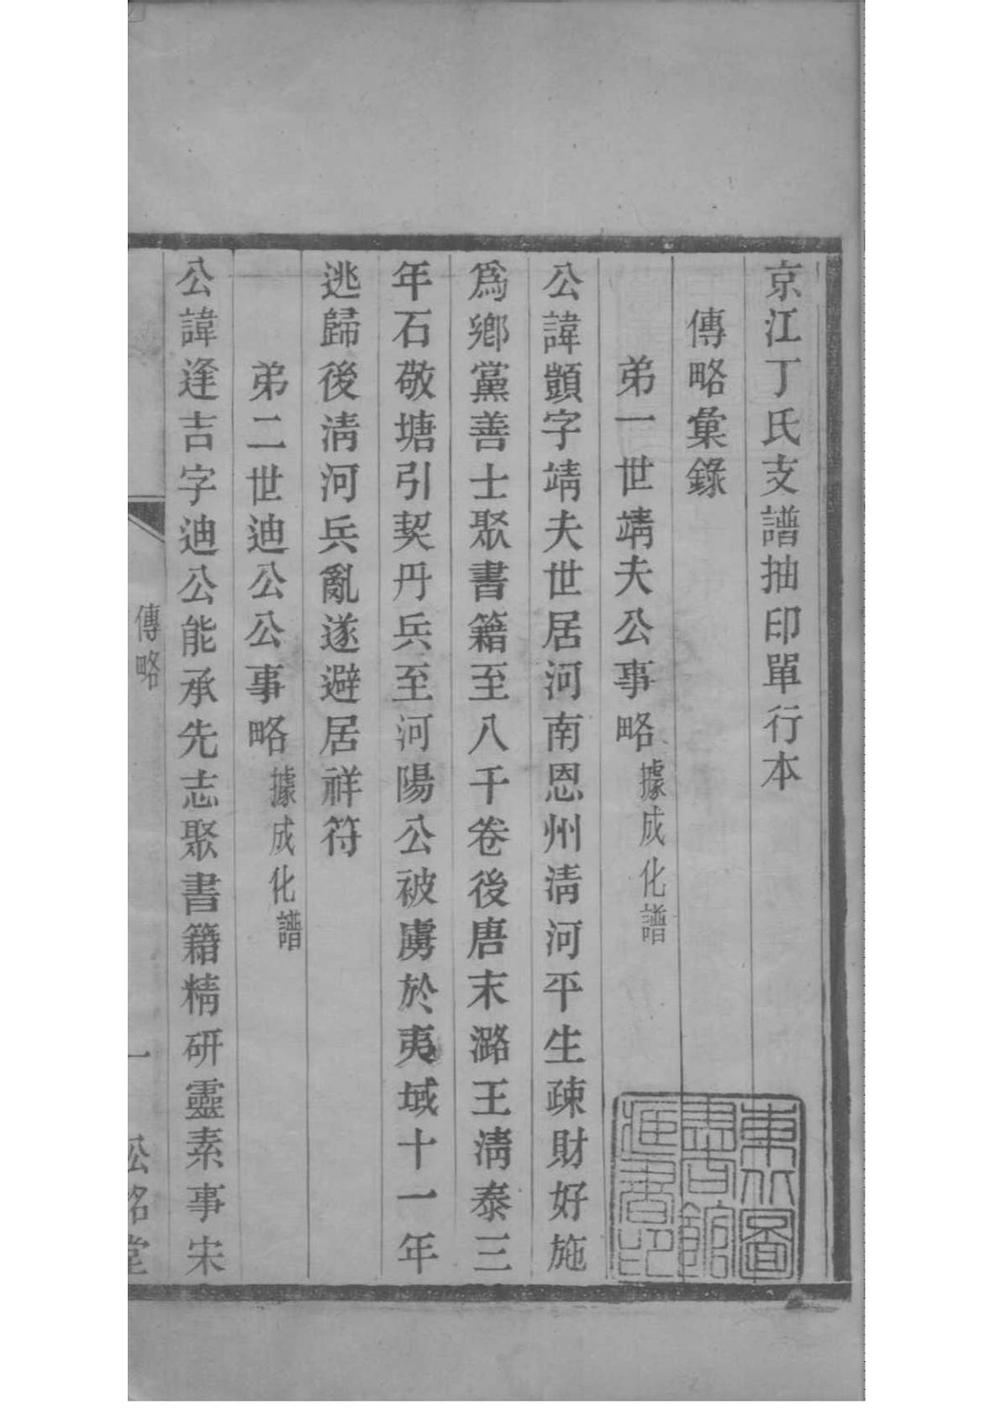 京江丁氏支譜抽印單行本
傳略彙錄
弟一世靖夫公事略據成化譜
公諱顗字靖夫世居河南恩州清河平生疎財好施
爲鄉黨善士聚書籍至八千卷後唐末潞王清泰三
年石敬塘引契丹兵至河陽公被虜於夷域十一年
逃歸後清河兵亂遂避居祥符
弟二世迪公公事略據成化譜
公諱逢吉字迪公能承先志聚書籍精研靈素事宋
傳略
一
松銘堂
東北圖
書館
藏書印